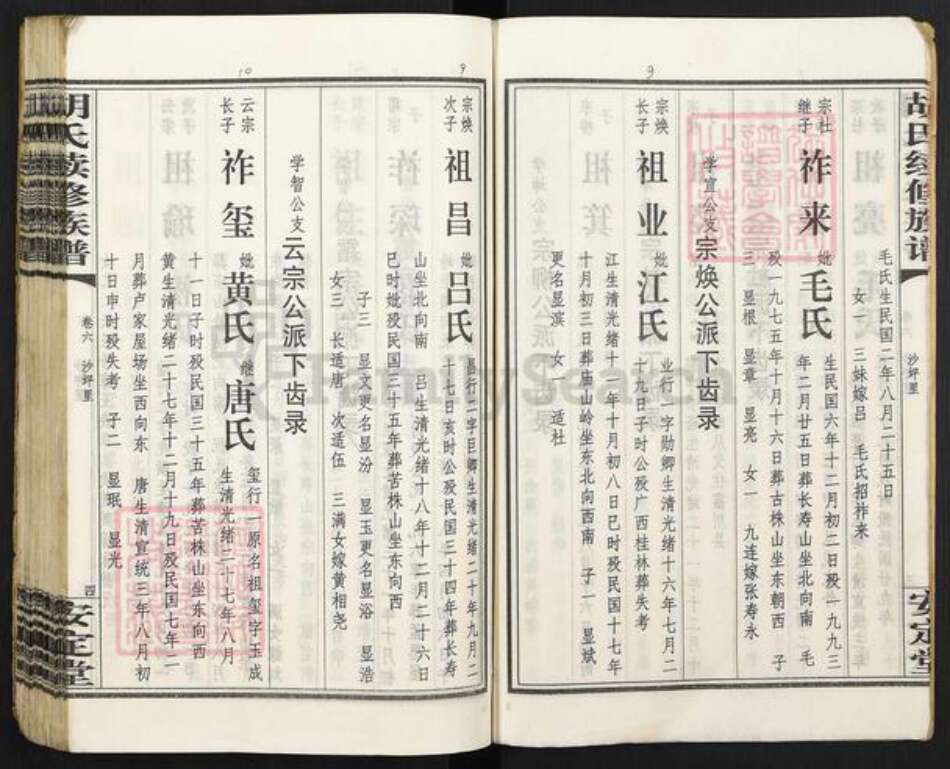 胡氏续修族谱
沙坪里
安定堂
9
毛氏生民国二年八月二十五日
女一 三妹嫁吕 毛氏招祚来
宗社
继子
祚来
妣毛氏
生民国六年十二月初二日殁一九九三
年二月廿五日葬长寿山坐北向南 毛
殁一九七五年十月十六日葬古株山坐东朝西 子
三 显根 显章 显亮 女一 九连嫁张寿永
学宣公支宗焕公派下齿录
宗焕
长子
祖业
妣江氏
业行一字勋卿生清光绪十六年七月二
十九日子时公殁广西桂林葬失考
江生清光绪十一年十月初八日巳时殁民国十七年
十月初三日葬庙山岭坐东北向西南 子一 显斌
更名显滨 女一 适杜
9
宗焕
次子
祖昌
妣吕氏
昌行二字巨卿生清光绪二十年九月二
十七日亥时公殁民国三十四年葬长寿
山坐北向南 吕生清光绪十八年十二月二十六日
巳时妣殁民国三十五年葬苦株山坐东向西
子三 显文更名显汾 显玉更名显浴 显浩
女三 长适唐 次适伍 三满女嫁黄相尧
学智公支云宗公派下齿录
10
云宗
长子
祚玺
妣黄氏 继唐氏
玺行一原名祖玺字玉成
生清光绪二十七年八月
十一日子时殁民国三十五年葬苦株山坐东向西
黄生清光绪二十七年十二月十九日殁民国七年二
月葬卢家屋场坐西向东 唐生清宣统三年八月初
十日申时殁失考 子二 显珉 显光
胡氏续修族谱
卷六 沙坪里
四
安定堂
FamilySearch